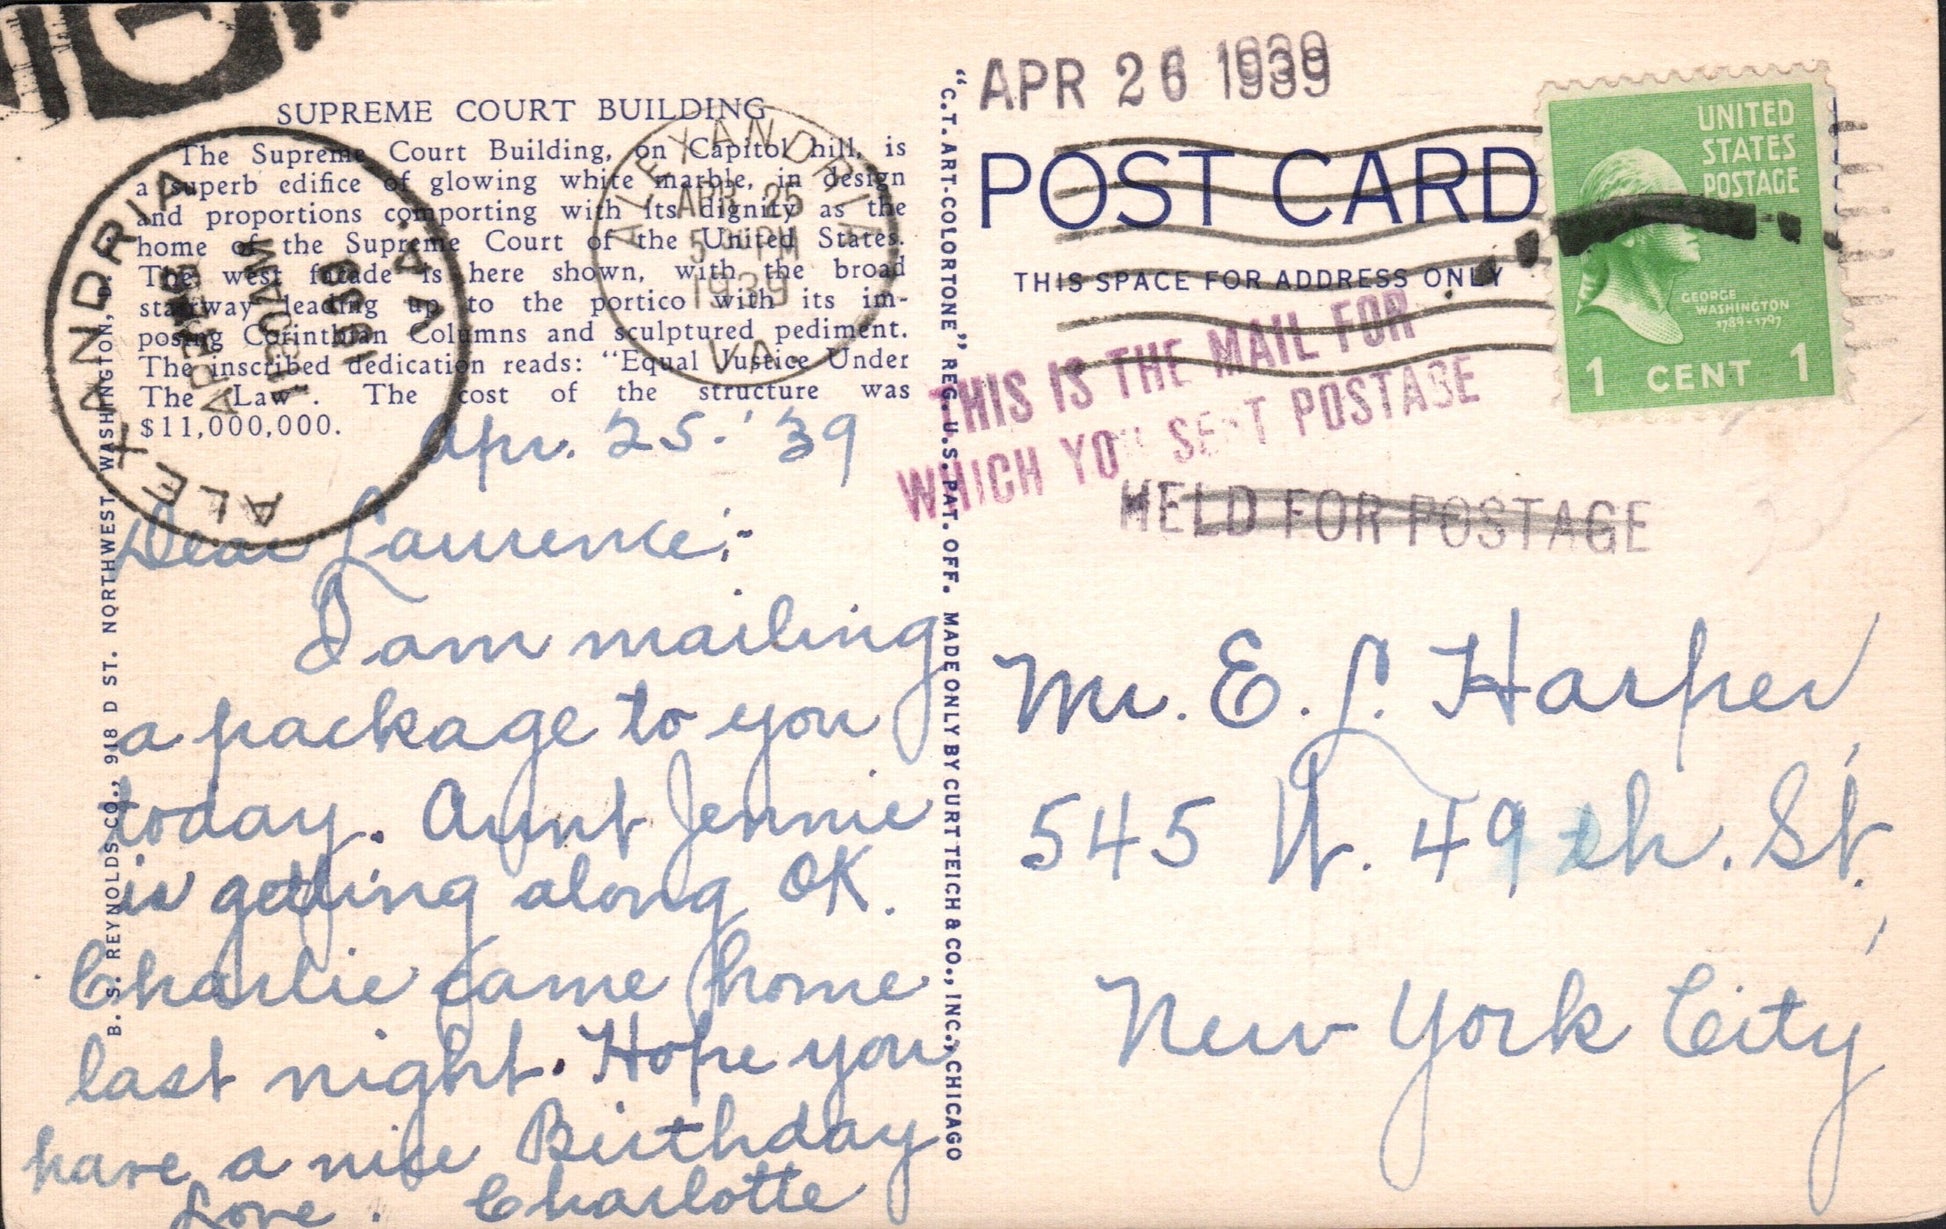 SUPREME COURT BUILDING
The Supreme Court Building, on Capitol hill, is
a superb edifice of glowing white marble, in design
and proportions comporting with its dignity as the
home of the Supreme Court of the United States.
The west facade is here shown, with the broad
stairway leading up to the portico with its im-
posing Corinthian Columns and sculptured pediment.
The inscribed dedication reads: "Equal Justice Under
The Law". The cost of the structure was
$11,000,000.
ALEXANDRIA
VA.
APR
11 30 AM
1939
ALEXANDRIA
APR 25
5 PM
1939
VA.
B. S. REYNOLDS CO., 918 D ST. NORTHWEST WASHINGTON, D.
Apr. 25. '39
Dear Laurence:-
I am mailing
a package to you
today. Aunt Jennie
is getting along OK.
Charlie came home
last night. Hope you
have a nice Birthday
Love. Charlotte
"C.T. ART-COLORTONE" REG. U.S. PAT. OFF. MADE ONLY BY CURT TEICH & CO., INC., CHICAGO
APR 26 1939
POST CARD
THIS SPACE FOR ADDRESS ONLY
THIS IS THE MAIL FOR
WHICH YOU SENT POSTAGE
HELD FOR POSTAGE
UNITED
STATES
POSTAGE
GEORGE
WASHINGTON
1789-1797
1 CENT 1
Mr. E. L. Harper
545 W. 49th. St.
New York City